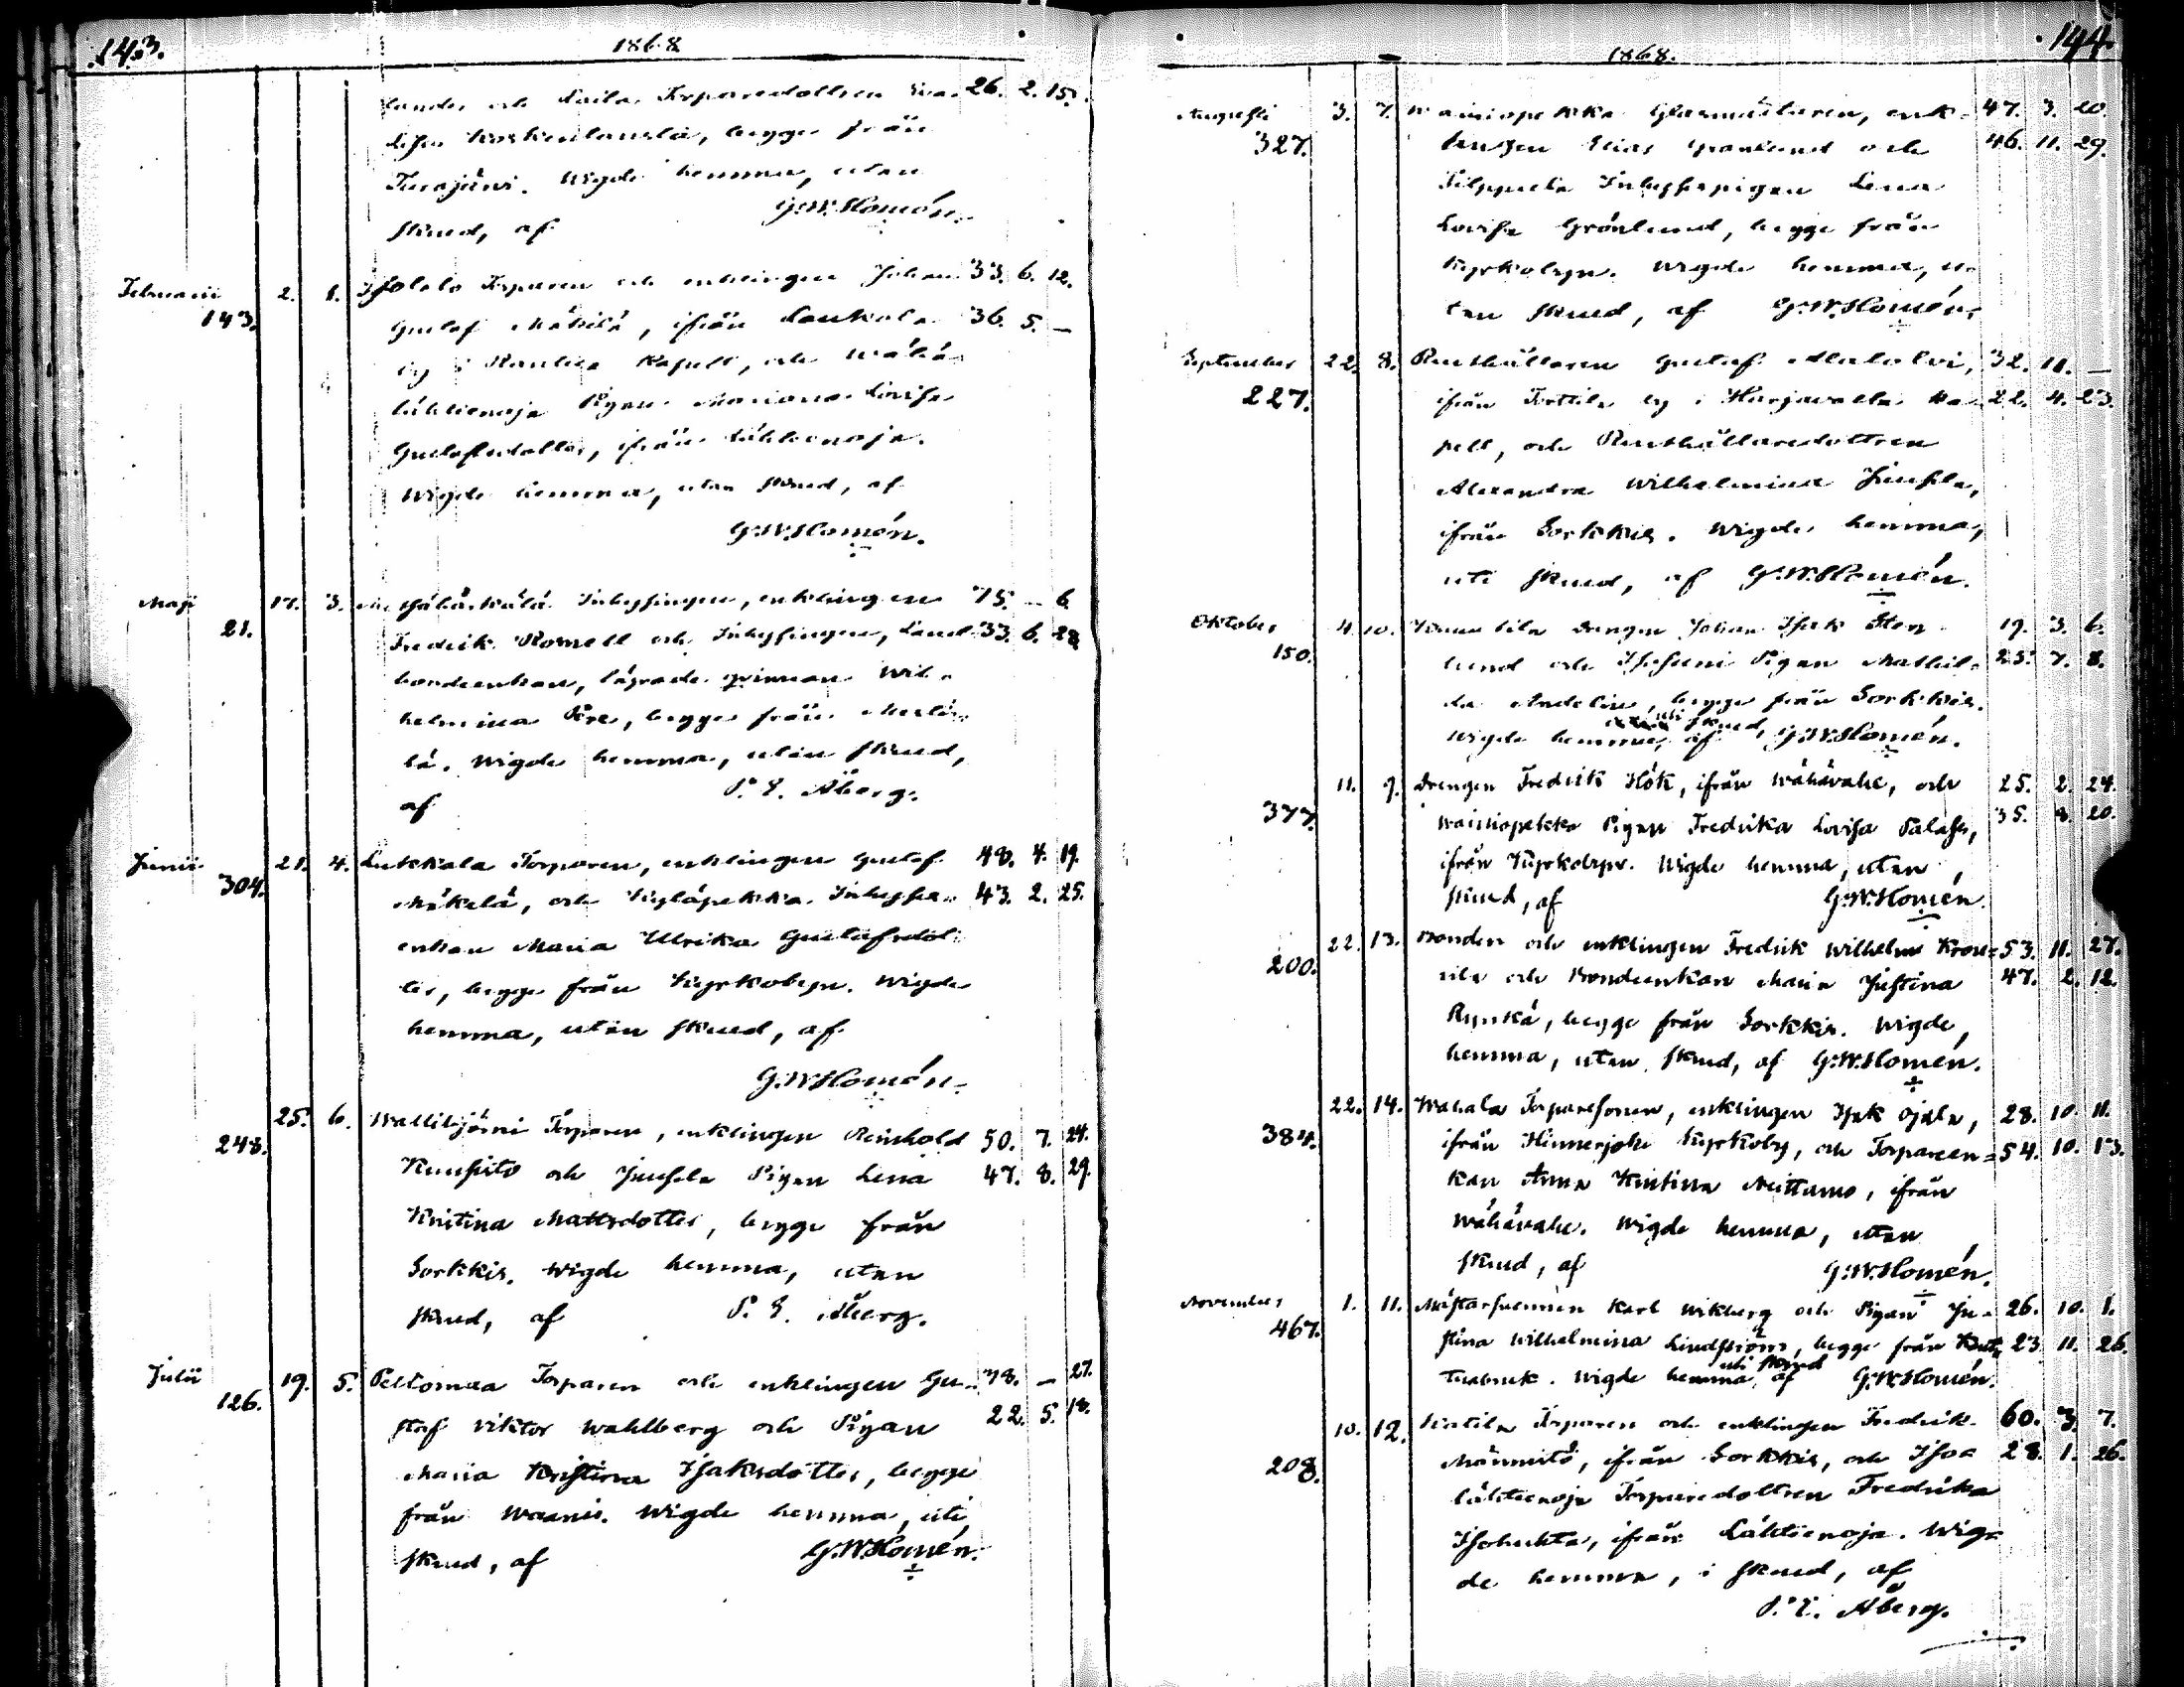 143.
1868
landes och Laila Torparedottren Eva 26. 2. 15.
Lisa Koskenlauska, begge från
Turajärvi. Wigde hemma, utan
skrud, af G.W. Homén.
Februarii 2. 1. Isotalo Torparen och enklingen Johan 33. 6. 12.
143. Gustaf Mäkilä, ifrån Laukola 36. 5. —
by i Kapell, och Wähä
lähteenoja Pigan Mariana Lovisa
Gustafsdotter, ifrån Lähteenoja.
Wigde hemma, utan skrud, af
G.W. Homén.
Maji 17. 3. Inhysingen, enklingen 75. — 6.
21. Fredrik Romell och Inhysingen, Land 33. 6. 28
bondeenkan, lägrade qvinnan Wil-
helmina Pere, begge från
lä. Wigde hemma, utan skrud,
af P. E. Åberg.
Junii 21. 4. Lukkala Torparen, enklingen Gustaf 48. 4. 19.
304. Mäkelä, och Kyläpekka Inhyses 43. 2. 25.
enkan Maria Ulrika Gustafsdot
ter, begge från Kyrkobyn. Wigde
hemma, utan skrud, af
G.W. Homén.
25. 6. Wallitjärvi Torparen, enklingen Reinhold 50. 7. 24.
248. Kuusisto och Juusela Pigan Lena 47. 8. 29.
Kristina Mattsdotter, begge från
Sorkkis. Wigde hemma, utan
skrud, af P. E. Åberg.
Julii 19. 5. Peltomaa Torparen och enklingen Gu- 38. — 27.
126. staf Viktor Wahlberg och Pigan 22. 5. 18.
Maria Kristina Isaksdotter, begge
från Waanis. Wigde hemma, uti
skrud, af G.W. Homén.
144.
1868.
Augusti 3. 7. Wainiopekka Glasmästaren, enk- 47. 3. 20.
327. lingen Elias Grönlund och 46. 11. 29.
Filppula Inhysespigan Lena
Lovisa Grönlund, begge från
Kyrkobyn. Wigde hemma, u-
tan skrud, af G.W. Homén.
September 22. 8. Rusthållaren Gustaf Alatolvi, 32. 11. —
227. ifrån Torttila by i Harjavalta Ka- 22. 4. 23.
pell, och Rusthållaredottren
Alexandra Wilhelmina Juusela,
ifrån Sorkkis. Wigde hemma,
uti skrud, af G.W. Homén.
Oktober 4. 10. Drengen Johan Isak Sten- 19. 3. 6.
150. lund och Pigan Mathil- 25. 7. 8.
da Andelin, begge från Sorkkis.
uti skrud,
Wigde hemma, af G.W. Homén.
11. 9. Drengen Fredrik Hök, ifrån Wähävahe, och 25. 2. 24.
377. Wainiopekka Pigan Fredrika Lovisa Palas, 35. 8. 20.
ifrån Kyrkobyn. Wigde hemma, utan
skrud, af G.W. Homén.
22. 13. Bonden och enklingen Fredrik Wilhelm Krou= 53. 11. 27.
200. vila och Bondeenkan Maria Justina 47. 2. 12.
Ryyskä, begge från Sorkkis. Wigde,
hemma, utan skrud, af G.W. Homén.
22. 14. Wahala Torparesonen, enklingen Isak Ojala, 28. 10. 11.
384. ifrån Hinnerjoki Kyrkoby, och Torpareen= 54. 10. 13.
kan Anna Kristina Neittamo, ifrån
Wähävahe. Wigde hemma, utan
skrud, af G.W. Homén.
November 1. 11. Mästarsvennen Karl Wikberg och Pigan Ju- 26. 10. 1.
467. stina Wilhelmina Lindström, begge från 23. 11. 26.
uti skrud
Wigde hemma, af G.W. Homén.
10. 12. Torparen och enklingen Fredrik 60. 3. 7.
208. Männistö, ifrån Sorkkis, och Isoa 28. 1. 26.
lähteenoja Torparedottren Fredrika
Isohukta, ifrån Lähteenoja. Wig-
de hemma, i skrud, af
P. E. Åberg.